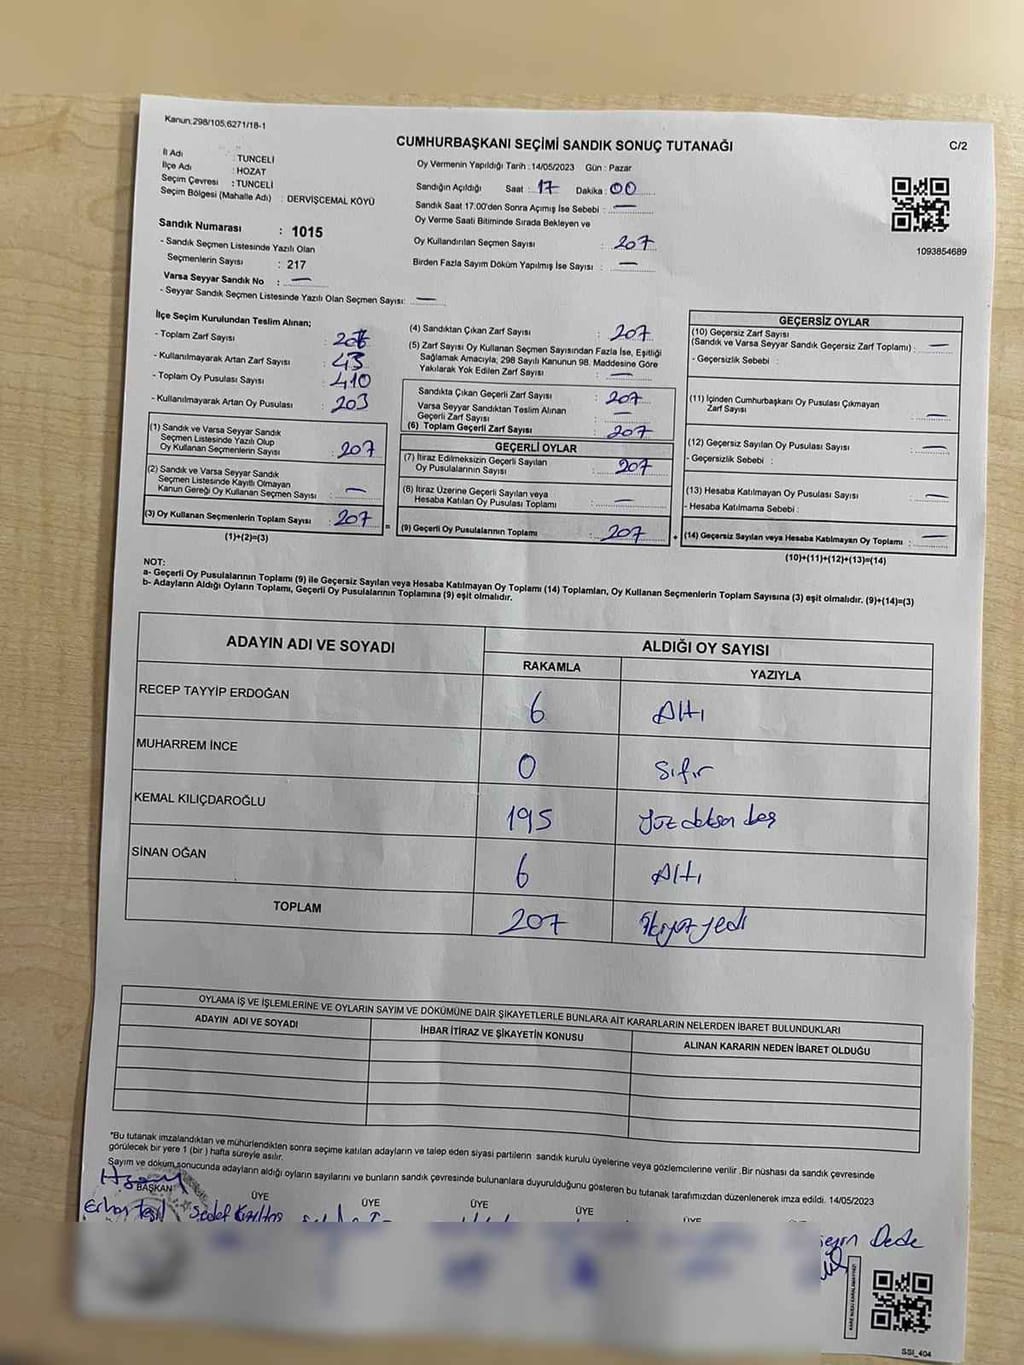 Kanun.298/105,6271/18-1
CUMHURBAŞKANI SEÇİMİ SANDIK SONUÇ TUTANAĞI
C/2
İl Adı : TUNCELİ
İlçe Adı : HOZAT
Seçim Çevresi : TUNCELİ
Seçim Bölgesi (Mahalle Adı) : DERVİŞCEMAL KÖYÜ
Sandık Numarası : 1015
- Sandık Seçmen Listesinde Yazılı Olan
Seçmenlerin Sayısı : 217
Varsa Seyyar Sandık No : —
- Seyyar Sandık Seçmen Listesinde Yazılı Olan Seçmen Sayısı: —
Oy Vermenin Yapıldığı Tarih : 14/05/2023 Gün : Pazar
Sandığın Açıldığı Saat : 17 Dakika : 00
Sandık Saat 17:00'den Sonra Açımış İse Sebebi : —
Oy Verme Saati Bitiminde Sırada Bekleyen ve
Oy Kullandırılan Seçmen Sayısı : 207
Birden Fazla Sayım Döküm Yapılmış İse Sayısı : —
1093854689
İlçe Seçim Kurulundan Teslim Alınan;
- Toplam Zarf Sayısı :
- Kullanılmayarak Artan Zarf Sayısı : 43
- Toplam Oy Pusulası Sayısı : 410
- Kullanılmayarak Artan Oy Pusulası : 203
(1) Sandık ve Varsa Seyyar Sandık
Seçmen Listesinde Yazılı Olup
Oy Kullanan Seçmenlerin Sayısı : 207
(2) Sandık ve Varsa Seyyar Sandık
Seçmen Listesinde Kayıtlı Olmayan
Kanun Gereği Oy Kullanan Seçmen Sayısı : —
(3) Oy Kullanan Seçmenlerin Toplam Sayısı : 207 =
(1)+(2)=(3)
(4) Sandıktan Çıkan Zarf Sayısı : 207
(5) Zarf Sayısı Oy Kullanan Seçmen Sayısından Fazla İse, Eşitliği
Sağlamak Amacıyla; 298 Sayılı Kanunun 98. Maddesine Göre
Yakılarak Yok Edilen Zarf Sayısı : —
Sandıkta Çıkan Geçerli Zarf Sayısı : 207
Varsa Seyyar Sandıktan Teslim Alınan
Geçerli Zarf Sayısı : —
(6) Toplam Geçerli Zarf Sayısı : 207
GEÇERLİ OYLAR
(7) İtiraz Edilmeksizin Geçerli Sayılan
Oy Pusulalarının Sayısı : 207
(8) İtiraz Üzerine Geçerli Sayılan veya
Hesaba Katılan Oy Pusulası Toplamı : —
(9) Geçerli Oy Pusulalarının Toplamı : 207 +
GEÇERSİZ OYLAR
(10) Geçersiz Zarf Sayısı
(Sandık ve Varsa Seyyar Sandık Geçersiz Zarf Toplamı) : —
- Geçersizlik Sebebi :
(11) İçinden Cumhurbaşkanı Oy Pusulası Çıkmayan
Zarf Sayısı : —
(12) Geçersiz Sayılan Oy Pusulası Sayısı : —
- Geçersizlik Sebebi :
(13) Hesaba Katılmayan Oy Pusulası Sayısı : —
- Hesaba Katılmama Sebebi :
(14) Geçersiz Sayılan veya Hesaba Katılmayan Oy Toplamı : —
(10)+(11)+(12)+(13)=(14)
NOT:
a- Geçerli Oy Pusulalarının Toplamı (9) ile Geçersiz Sayılan veya Hesaba Katılmayan Oy Toplamı (14) Toplamları, Oy Kullanan Seçmenlerin Toplam Sayısına (3) eşit olmalıdır. (9)+(14)=(3)
b- Adayların Aldığı Oyların Toplamı, Geçerli Oy Pusulalarının Toplamına (9) eşit olmalıdır.
ADAYIN ADI VE SOYADI
ALDIĞI OY SAYISI
RAKAMLA YAZIYLA
RECEP TAYYİP ERDOĞAN 6 Altı
MUHARREM İNCE 0 Sıfır
KEMAL KILIÇDAROĞLU 195 Yüz doksan beş
SİNAN OĞAN 6 Altı
TOPLAM 207 İkiyüz yedi
OYLAMA İŞ VE İŞLEMLERİNE VE OYLARIN SAYIM VE DÖKÜMÜNE DAİR ŞİKAYETLERLE BUNLARA AİT KARARLARIN NELERDEN İBARET BULUNDUKLARI
ADAYIN ADI VE SOYADI İHBAR İTİRAZ VE ŞİKAYETİN KONUSU ALINAN KARARIN NEDEN İBARET OLDUĞU
*Bu tutanak imzalandıktan ve mühürlendikten sonra seçime katılan adayların ve talep eden siyasi partilerin sandık kurulu üyelerine veya gözlemcilerine verilir .Bir nüshası da sandık çevresinde
görülecek bir yere 1 (bir ) hafta süreyle asılır.
Sayım ve döküm sonucunda adayların aldığı oyların sayılarını ve bunların sandık çevresinde bulunanlara duyurulduğunu gösteren bu tutanak tarafımızdan düzenlenerek imza edildi. 14/05/2023
BAŞKAN ÜYE ÜYE ÜYE ÜYE ÜYE
Sedef Kızıltaş
Dede
SSI_404